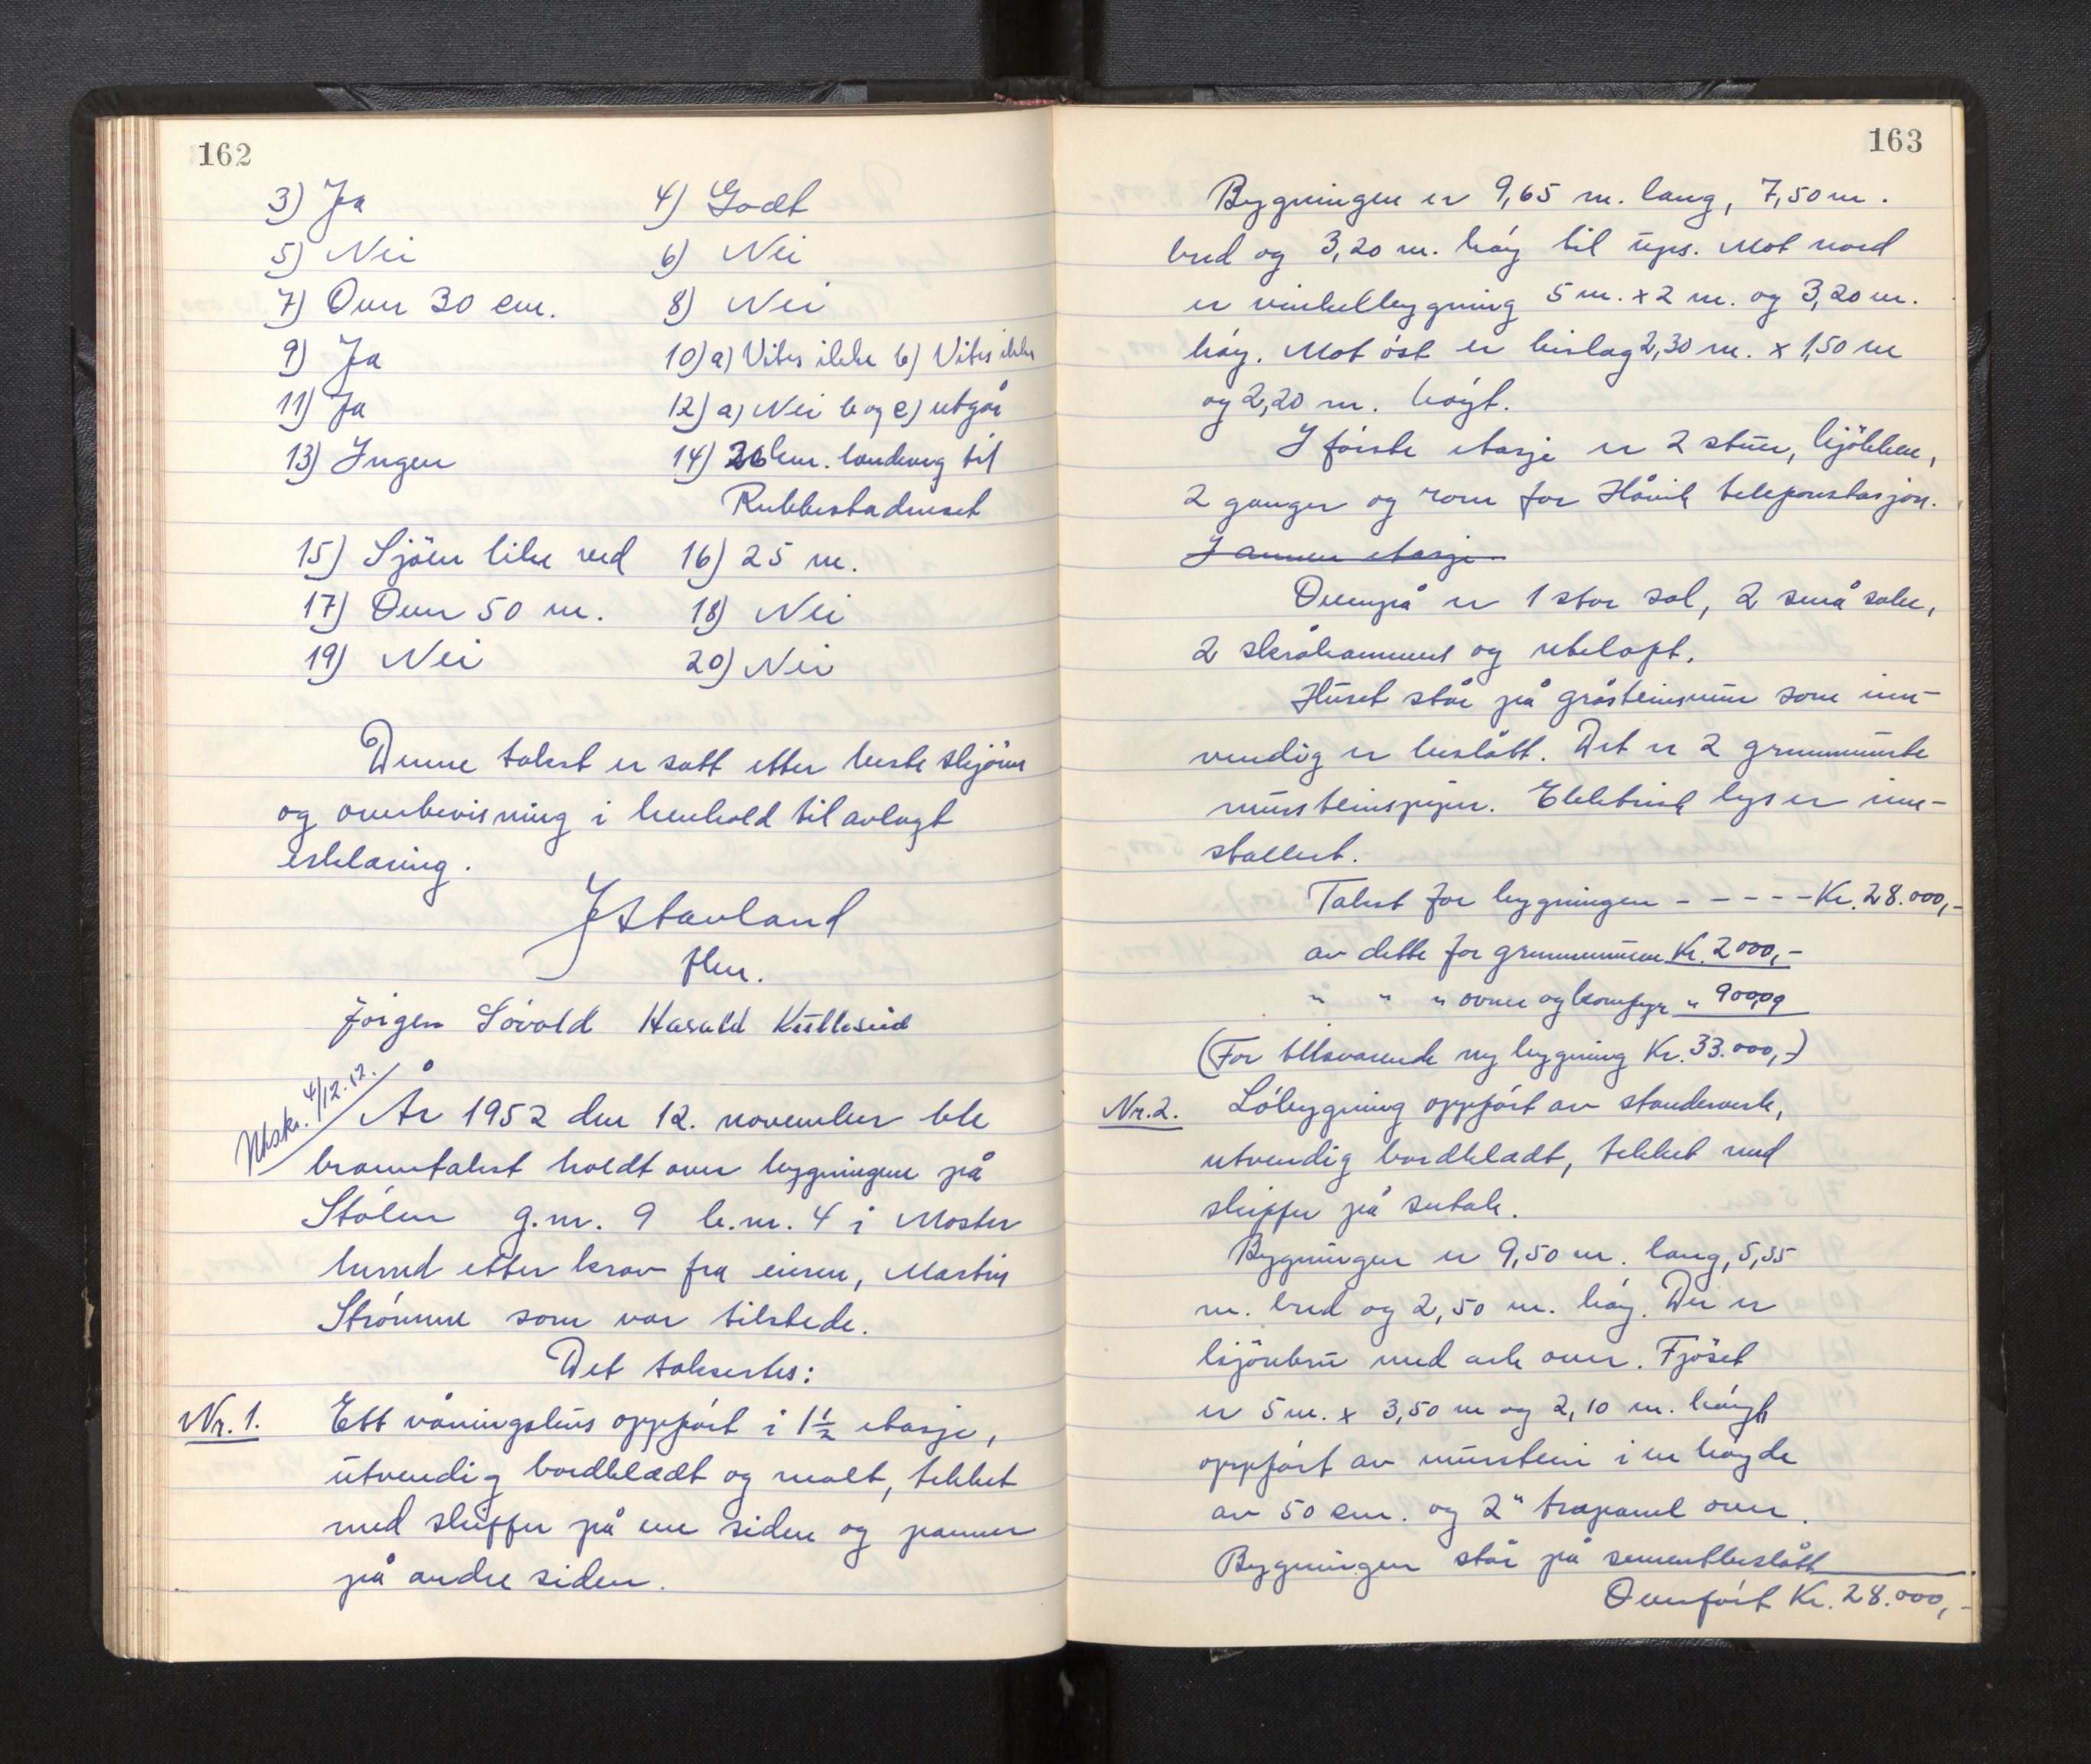 162
3) Ja 4) Godt
5) Nei 6) Nei
7) Over 30 cm. 8) Nei
9) Ja 10) a) Vites ikke b) Vites ikke
11) Ja 12) a) Nei b og c) utgår
13) Ingen 14) 26 km. landveg til
Rubbestadneset
15) Sjöen like ved 16) 25 m.
17) Over 50 m. 18) Nei
19) Nei 20) Nei
Denne takst er satt etter beste skjönn
og overbevisning i henhold til avlagt
erklæring.
J Stavland
fhu.
Jörgen Lövold Harald Kulleseid
Utskr. 4/12.12.
År 1952 den 12. november ble
branntakst holdt over bygningene på
Stölen g.nr. 9 b.nr. 4 i Moster
herred etter krav fra eieren, Martin
Strömme som var tilstede.
Det takseres:
Nr. 1. Ett våningshus oppfört i 1½ etasje,
utvendig bordkledt og malt, tekket
med skiffer på ene siden og panner
på andre siden.
163
Bygningen er 9,65 m. lang, 7,50 m.
bred og 3,20 m. höy til ups. Mot nord
er vinkelbygning 5 m. x 2 m. og 3,20 m.
höy. Mot öst er bislag 2,30 m. x 1,50 m
og 2,20 m. höyt.
I förste etasje er 2 stuer, kjökken,
2 ganger og rom for Håvik telefonstasjon.
I annen etasje
Ovenpå er 1 stor sal, 2 små saler,
2 skråkammers og uteloft.
Huset står på gråsteinsmur som inn-
vendig er beslått. Det er 2 grunnmurte
mursteinspiper. Elektrisk lys er inn-
stallert.
Takst for bygningen - - - - - Kr. 28.000,-
av dette for grunnmuren Kr. 2000,-
" " " ovner og komfyr " 900,00
(For tilsvarende ny bygning Kr. 33.000,-)
Nr. 2. Löbygning oppfört av standerverk,
utvendig bordkledt, tekket med
skiffer på sutak.
Bygningen er 9,50 m. lang, 5,35
m. bred og 2,50 m. höy. Der er
kjörebru med ark over. Fjöset
er 5 m. x 3,50 m og 2,10 m. höyt,
oppfört av murstein i en höyde
av 50 cm. og 2" trapanel over.
Bygningen står på sementbeslått
Overfört Kr. 28.000,-